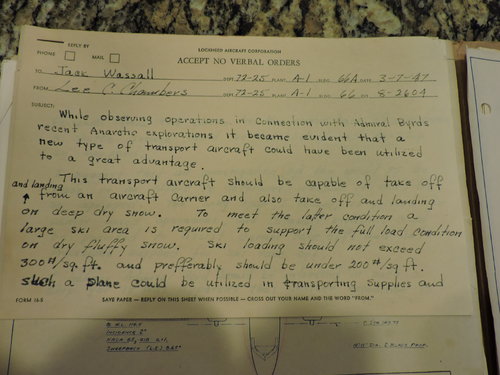 REPLY BY
PHONE MAIL
LOCKHEED AIRCRAFT CORPORATION
ACCEPT NO VERBAL ORDERS
TO Jack Wassall DEPT. 72-25 PLANT A-1 BLDG. 66A DATE 3-7-47
FROM Lee C. Chambers DEPT. 72-25 PLANT A-1 BLDG. 66 EXT. 8-2604
SUBJECT:
While observing operations in Connection with Admiral Byrds
recent Anarctic explorations it became evident that a
new type of transport aircraft could have been utilized
to a great advantage.
This transport aircraft should be capable of take off
and landing
from an aircraft carrier and also take off and landing
on deep dry snow. To meet the latter condition a
large ski area is required to support the full load condition
on dry fluffy snow. Ski loading should not exceed
300#/sq.ft. and prefferably should be under 200#/sq ft.
Such a plane could be utilized in transporting supplies and
FORM 16-5 SAVE PAPER — REPLY ON THIS SHEET WHEN POSSIBLE — CROSS OUT YOUR NAME AND THE WORD "FROM."
INCIDENCE 2°